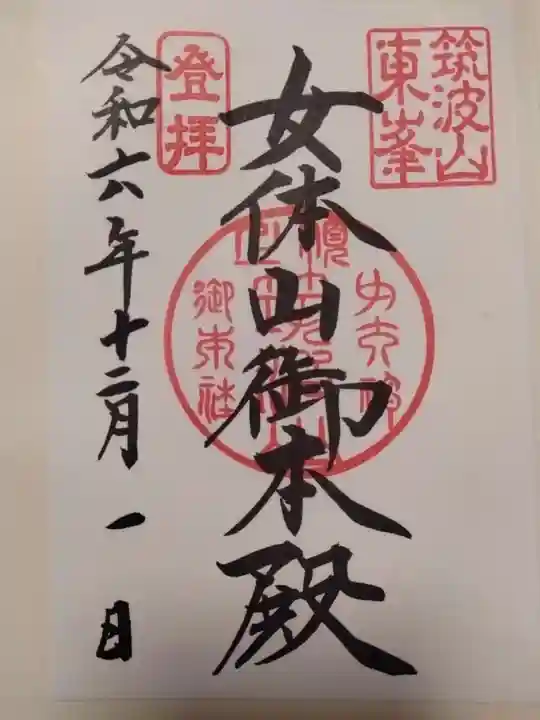 筑波山
東峯
女体山御本殿
登拝
令和六年十二月一日